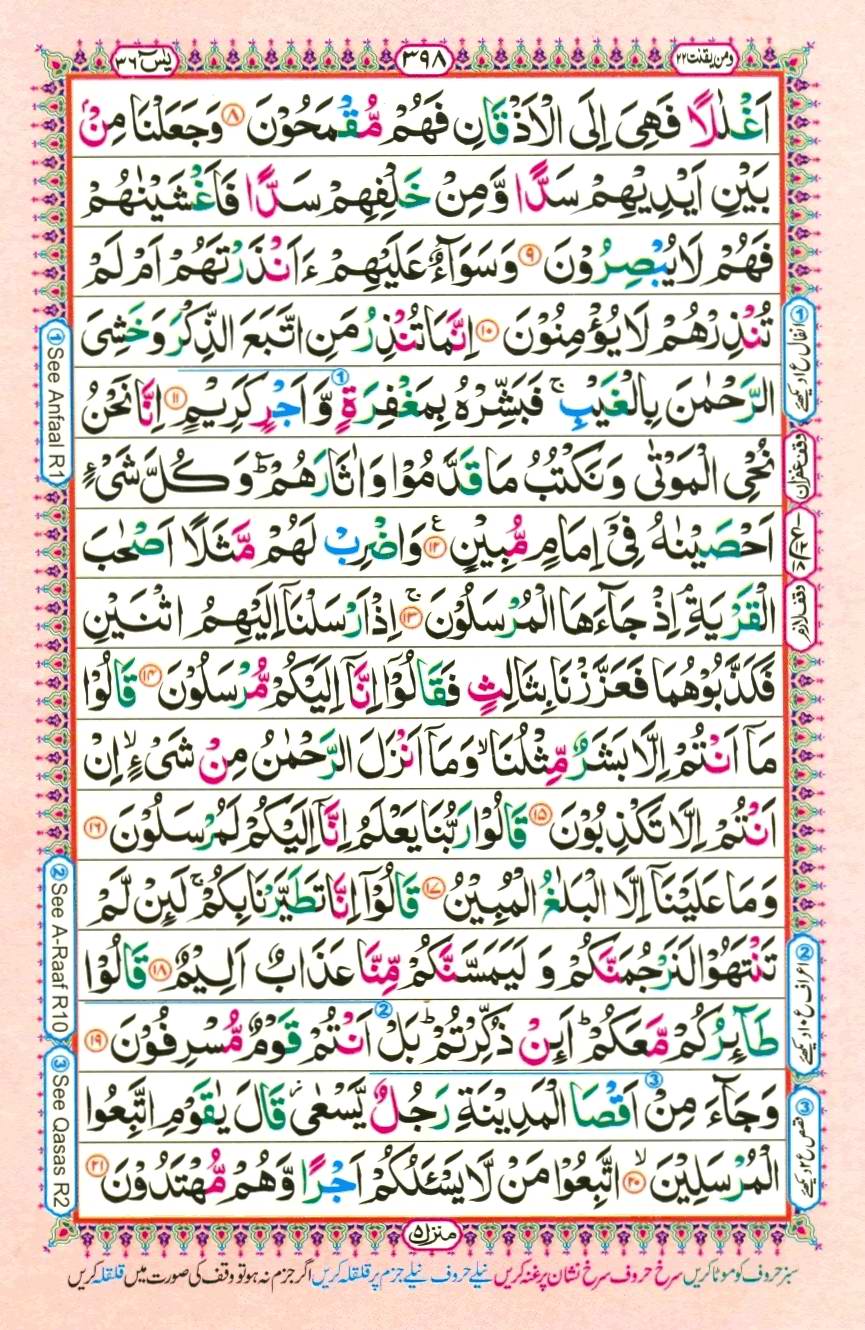 یٰسٓ ۳۶
۳۹۸
ومن یقنت ۲۲
اَغْلٰلًا فَهِیَ اِلَی الْاَذْقَانِ فَهُمْ مُّقْمَحُوْنَ ﴿۸﴾ وَجَعَلْنَا مِنْۢ
بَیْنِ اَیْدِیْهِمْ سَدًّا وَّمِنْ خَلْفِهِمْ سَدًّا فَاَغْشَیْنٰهُمْ
فَهُمْ لَا یُبْصِرُوْنَ ﴿۹﴾ وَسَوَآءٌ عَلَیْهِمْ ءَاَنْذَرْتَهُمْ اَمْ لَمْ
تُنْذِرْهُمْ لَا یُؤْمِنُوْنَ ﴿۱۰﴾ اِنَّمَا تُنْذِرُ مَنِ اتَّبَعَ الذِّكْرَ وَخَشِیَ
الرَّحْمٰنَ بِالْغَیْبِ ۚ فَبَشِّرْهُ بِمَغْفِرَةٍ وَّاَجْرٍ كَرِیْمٍ ﴿۱۱﴾ اِنَّا نَحْنُ
نُحْیِ الْمَوْتٰی وَنَكْتُبُ مَا قَدَّمُوْا وَاٰثَارَهُمْ ؕ وَكُلَّ شَیْءٍ
اَحْصَیْنٰهُ فِیْۤ اِمَامٍ مُّبِیْنٍ ﴿۱۲﴾ ع وَاضْرِبْ لَهُمْ مَّثَلًا اَصْحٰبَ
الْقَرْیَةِ ۘ اِذْ جَآءَهَا الْمُرْسَلُوْنَ ﴿۱۳﴾ ۚ اِذْ اَرْسَلْنَاۤ اِلَیْهِمُ اثْنَیْنِ
فَكَذَّبُوْهُمَا فَعَزَّزْنَا بِثَالِثٍ فَقَالُوْۤا اِنَّاۤ اِلَیْكُمْ مُّرْسَلُوْنَ ﴿۱۴﴾ قَالُوْا
مَاۤ اَنْتُمْ اِلَّا بَشَرٌ مِّثْلُنَا ۙ وَمَاۤ اَنْزَلَ الرَّحْمٰنُ مِنْ شَیْءٍ ۙ اِنْ
اَنْتُمْ اِلَّا تَكْذِبُوْنَ ﴿۱۵﴾ قَالُوْا رَبُّنَا یَعْلَمُ اِنَّاۤ اِلَیْكُمْ لَمُرْسَلُوْنَ ﴿۱۶﴾
وَمَا عَلَیْنَاۤ اِلَّا الْبَلٰغُ الْمُبِیْنُ ﴿۱۷﴾ قَالُوْۤا اِنَّا تَطَیَّرْنَا بِكُمْ ۚ لَئِنْ لَّمْ
تَنْتَهُوْا لَنَرْجُمَنَّكُمْ وَ لَیَمَسَّنَّكُمْ مِّنَّا عَذَابٌ اَلِیْمٌ ﴿۱۸﴾ قَالُوْا
طَآئِرُكُمْ مَّعَكُمْ ؕ اَئِنْ ذُكِّرْتُمْ ؕ بَلْ اَنْتُمْ قَوْمٌ مُّسْرِفُوْنَ ﴿۱۹﴾
وَجَآءَ مِنْ اَقْصَا الْمَدِیْنَةِ رَجُلٌ یَّسْعٰی ؗ قَالَ یٰقَوْمِ اتَّبِعُوا
الْمُرْسَلِیْنَ ﴿۲۰﴾ ۙ اتَّبِعُوْا مَنْ لَّا یَسْئَلُكُمْ اَجْرًا وَّهُمْ مُّهْتَدُوْنَ ﴿۲۱﴾
① See Anfaal R1
② See A-Raaf R10
③ See Qasas R2
① انفال ع ۱ دیکھئے
وقف غفران
وقف لازم
② اعراف ع ۱۰ دیکھئے
③ قصص ع ۲ دیکھئے
منزل ۵
سبز حروف کو موٹا کریں سرخ حروف سرخ نشان پر غنہ کریں نیلے حروف نیلے جزم پر قلقلہ کریں اگر جزم نہ ہو تو وقف کی صورت میں قلقلہ کریں